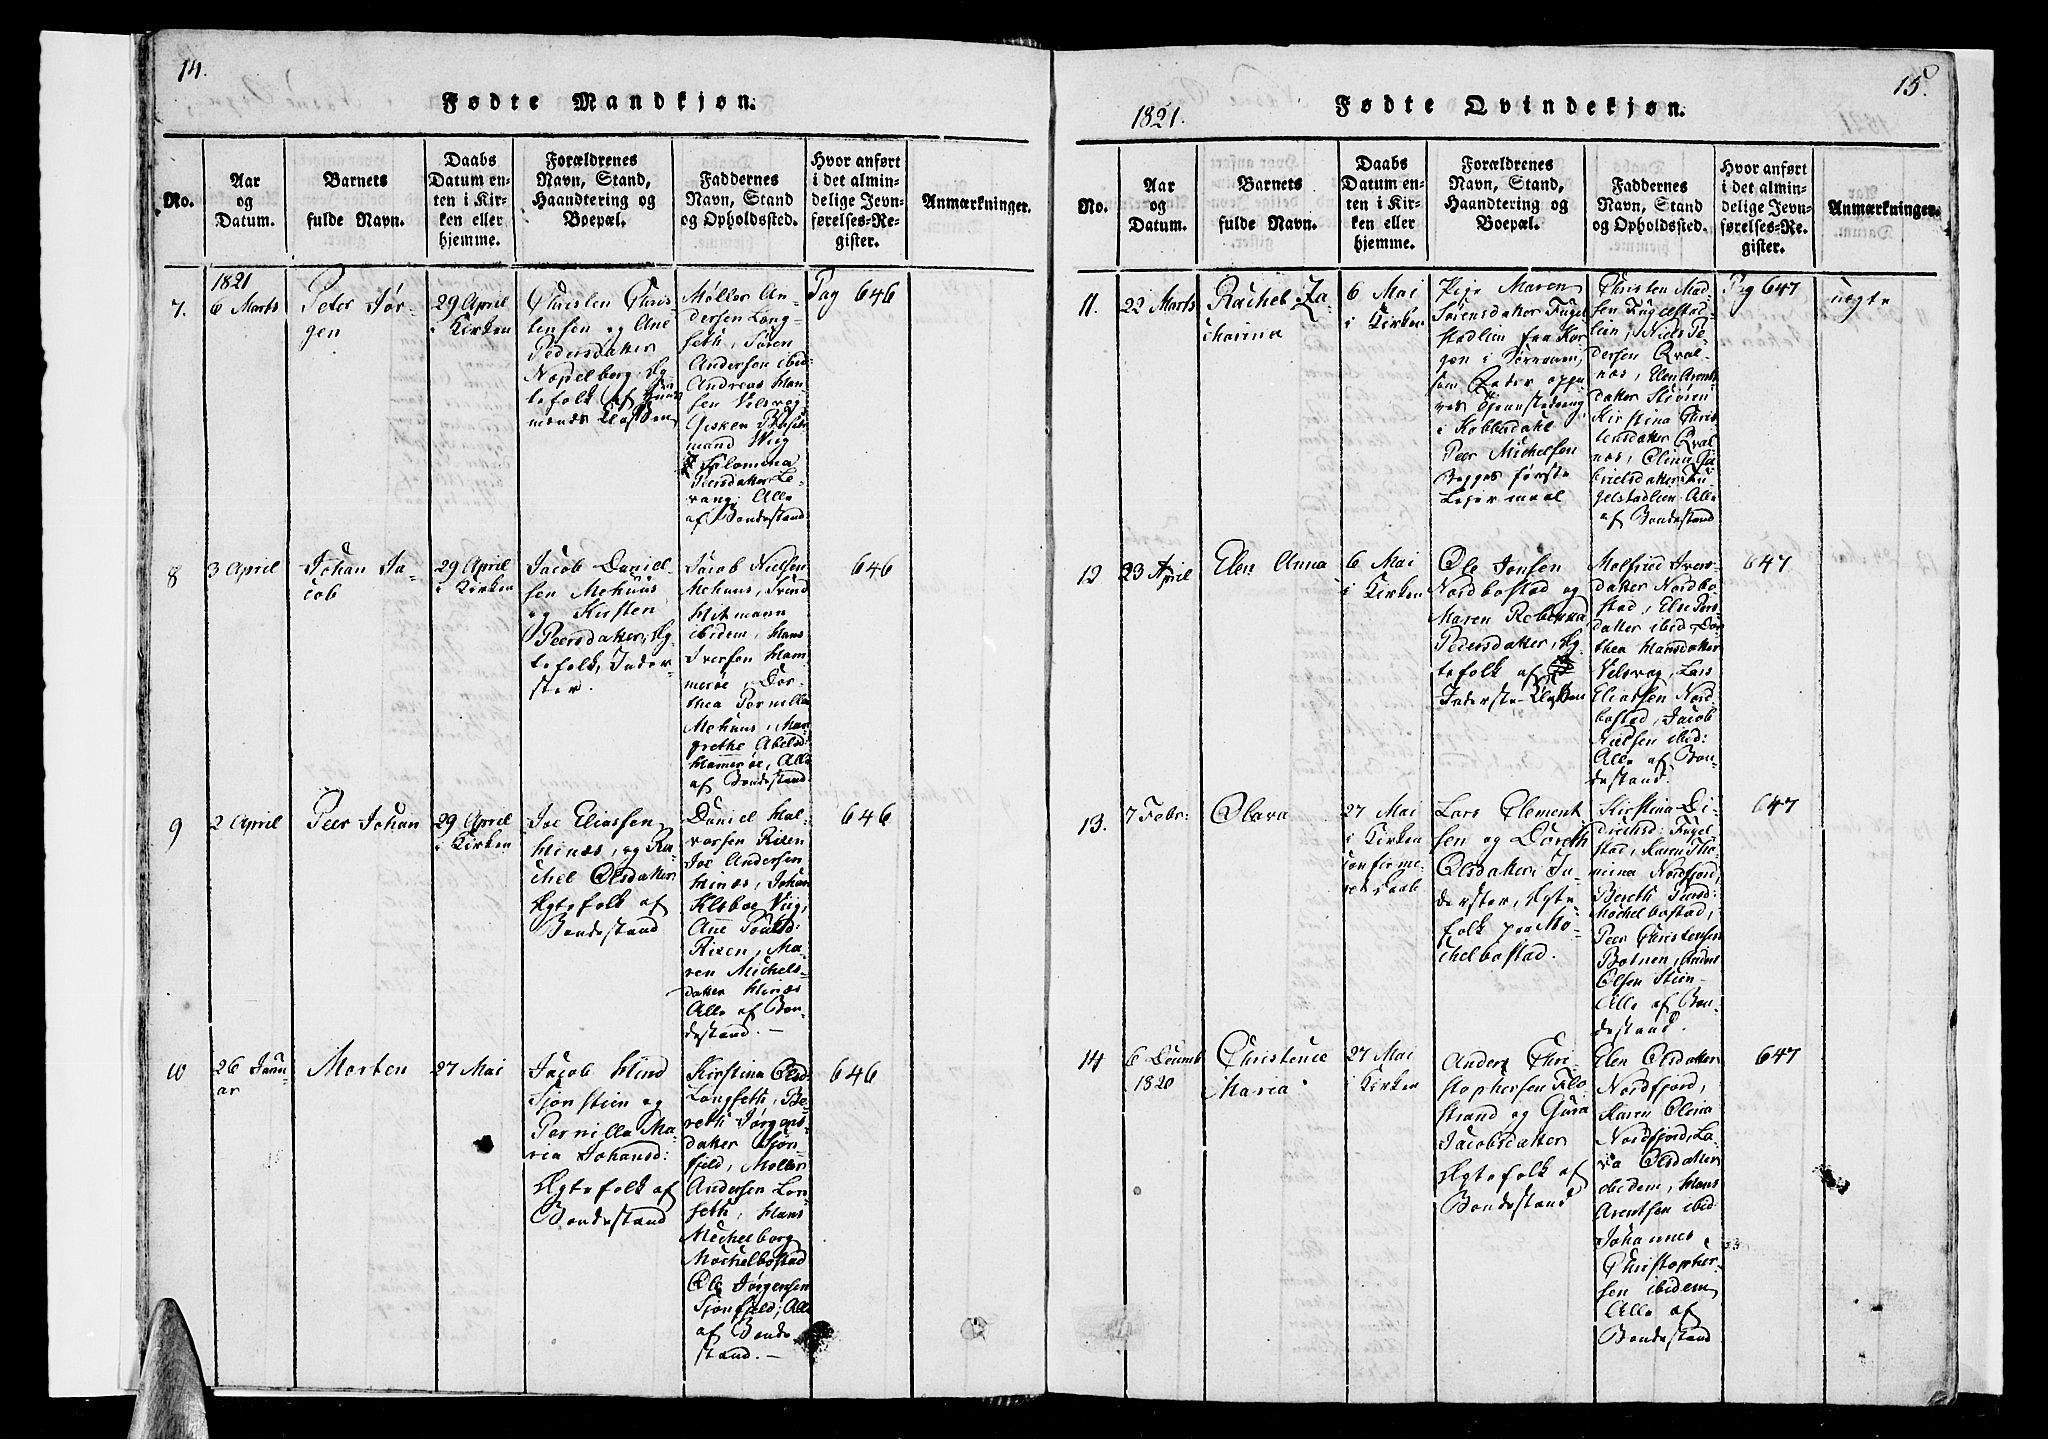 14.
Fødte Mandkjøn.
No.
Aar
og
Datum.
Barnets
fulde Navn.
Daabs
Datum en-
ten i Kir-
ken eller
hjemme.
Forældrenes
Navn, Stand,
Haandtering og
Boepæl.
Faddernes
Navn, Stand
og Opholdssted.
Hvor anført
i det almin-
delige Jevn-
førelses-Re-
gister.
Anmærkninger.
7.
1821
6 Marts
Peter Jør-
gen
29 April
i Kirken
Christen Chris
tensen og Ane
Pedersdatter
Æg-
tefolk af Huus
mands Classen
Møller An-
dersen Lang-
seth, Søren
Andersen ibid:
Andreas Han-
sen Velsvag
mand Viig
Salomina
Peersdatter Le-
vang. Alle
af Bondestand
Pag 646
8
3 April
Johan Ja-
cob
29 April
i Kirken
Jacob Daniel-
sen Mehuus
og Kirsten
Peersdatter, Æg-
tefolk, Inder-
ster.
Jacob Nielsen
Mehuus,
Hitmann
ibidem, Hans
Iversen Ham-
merøe, Dor-
thea Pernilla
Mehuus, Mar
grethe Abelsd
Hamerøe, Alle
af Bondestand
646
9
2 April
Peer Johan
29 April
i Kirken
Joe Eliassen
Hinæs, og Ra-
chel Olsdatter
Ægtefolk af
Bondestand
Daniel Hal-
vorsen Risen
Joe Andersen
Hinæs, Johan
Kleboe Viig,
Ane Poulsd:
Risen, Ma-
ren Michels-
datter Hinæs
Alle af Bon-
destand.
646
10
26 Janu-
ar
Morten
27 Mai
Jacob Hind
Sjonstien og
Pernilla Ma-
ria Johansd:
Ægtefolk af
Bondestand
Kirstina Olsd
Langseth, Be-
reth Jørgens
datter Sjon-
fjeld, Møller
Andersen Lan-
seth, Hans
Michelborg
Mochelbostad
Ole Jørgensen
Sjonfjeld, Alle
af Bonde-
stand.
646
15.
1821.
Fødte Qvindekjøn.
No.
Aar
og
Datum.
Barnets
fulde Navn.
Daabs
Datum en-
ten i Kir-
ken eller
hjemme.
Forældrenes
Navn, Stand,
Haandtering og
Boepæl.
Faddernes
Navn, Stand
og Opholdssted.
Hvor anført
i det almin-
delige Jevn-
førelses-Re-
gister.
Anmærkninger.
11.
22 Marts
Rachel Za-
charina
6 Mai
i Kirken
Pige Maren
Sørensdatter Fugel
stadlien fra Kor
gen i Sørranen,
som Fader opgi-
ves Tjenestedreng
i Kobberdahl
Peer Michelsen
Begges første
Leiermaal
Christen Mad-
sen Fugelstad-
lien, Niels Pe-
dersen Qval-
nes, Elen Arents
datter Stieren
Kirstina Chris
tensdatter Qval
nes, Olina Ga-
brielsdatter Fu-
gelstadlien. Alle
af Bondestand
Pag 647
uægte
12
23 April
Elen Anna
6 Mai
i Kirken
Ole Jonsen
Nordbostad og
Maren Rebekka
Pedersdatter, Æg-
tefolk af
Inderste-Classen
Molfrid Ivers-
datter Nordbo-
stad, Else Peers
datter ibid Dor
thea Hansdatter
Velsvag, Lars
Eliassen Nord-
bostad, Jacob
Nielsen ibid:
Alle af Bon-
destand.
647
13.
7 Febr:
Olava
27 Mai
i Kirken
confirme-
ret Daab
Lars Clement
sen og Doreth
Olsdatter, In-
derster, Ægte-
folk paa Mo-
chelbostad.
Kirstina Di-
drichsd: Fugel-
stad, Karen Tho-
mina Nordfjord,
Bereth
Mochelbostad,
Peer Christensen
Botnen, Anders
Olsen Stien
Alle af Bon-
destand.
647
14
6 Decemb
1820
Christence
Maria
27 Mai
i Kirken
Anders Chri
stophersen Flo
strand og Gura
Jacobsdatter
Ægtefolk af
Bondestand
Elen Olsdatter
Nordfjord,
Karen Olina
Nordfjord, La-
va Olsdatter
ibidem, Hans
Arentsen ibid
Johannes
Christopher-
sen ibidem
Alle af
Bondestand
647